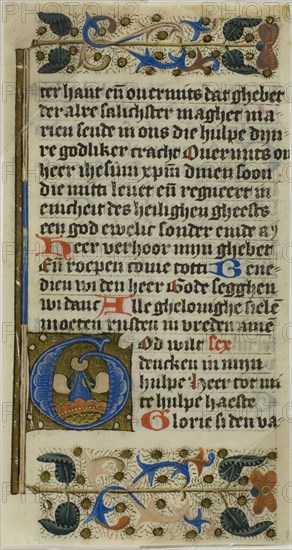 ter haut eñ overmits dat ghebet
der alre salichster maghet ma
rien sende in ons die hulpe dijn
re godliker cracht Overmits on
heer ihesum xpm dinen soon
die mitti levet eñ regneert in
enicheit des heilighen gheests
een god ewelic sonder einde am
Heer verhoor mijn ghebet
Eñ roepen come totti Bene
dien wi den heer Gode segghen
wi danc Alle ghelovighe sielē
moeten rusten in vreden amē
God wilt sex
dencken in mijn
hulpe Heer tot mi
te hulpe haeste
Glorie si den va